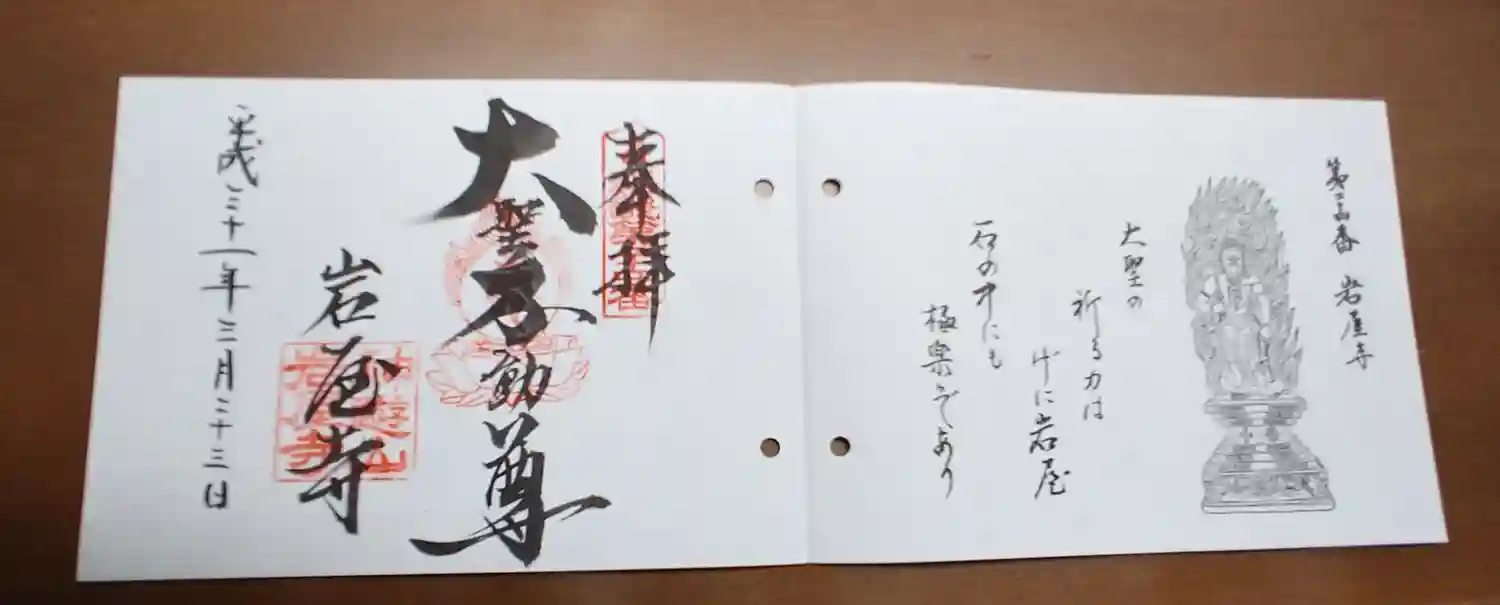 第二十五番 岩屋寺
大聖の
祈る力は
けに岩屋
石の中にも
極楽ぞあり
奉拝
大聖不動尊
岩屋寺
神遊山
岩屋寺
平成三十一年三月二十三日